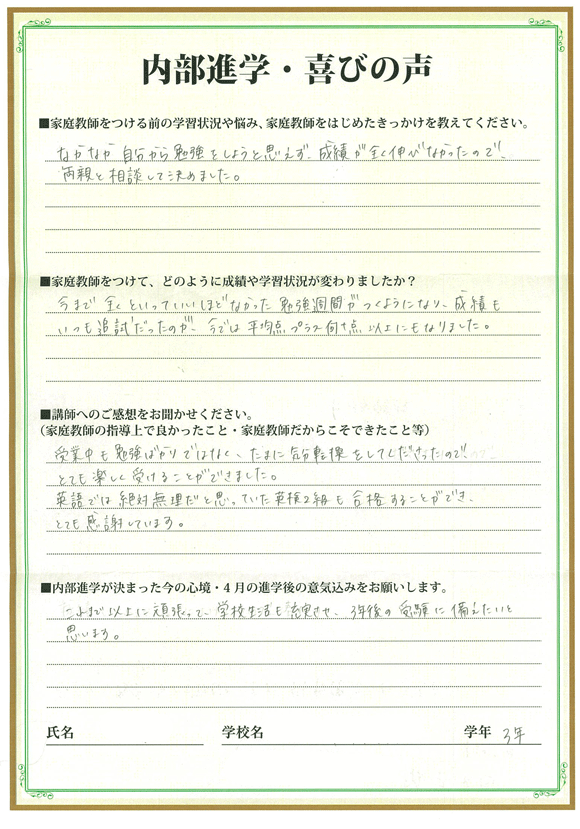 内部進学・喜びの声
■家庭教師をつける前の学習状況や悩み、家庭教師をはじめたきっかけを教えてください。
なかなか自分から勉強をしようと思えず、成績が全く伸びなかったので、
両親と相談して決めました。
■家庭教師をつけて、どのように成績や学習状況が変わりましたか？
今まで全くといっていいほどなかった勉強週間がつくようになり、成績も
いつも追試だったのが、今では平均点プラス何十点以上にもなりました。
■講師へのご感想をお聞かせください。
（家庭教師の指導上で良かったこと・家庭教師だからこそできたこと等）
受業中も勉強ばかりではなく、たまに気分転換をしてくださったので、
とても楽しく受けることができました。
英語では絶対無理だと思っていた英検2級も合格することができ、
とても感謝しています。
■内部進学が決まった今の心境・4月の進学後の意気込みをお願いします。
これまで以上に頑張って、学校生活も充実させ、3年後の受験に備えたいと
思います。
氏名 学校名 学年 3年